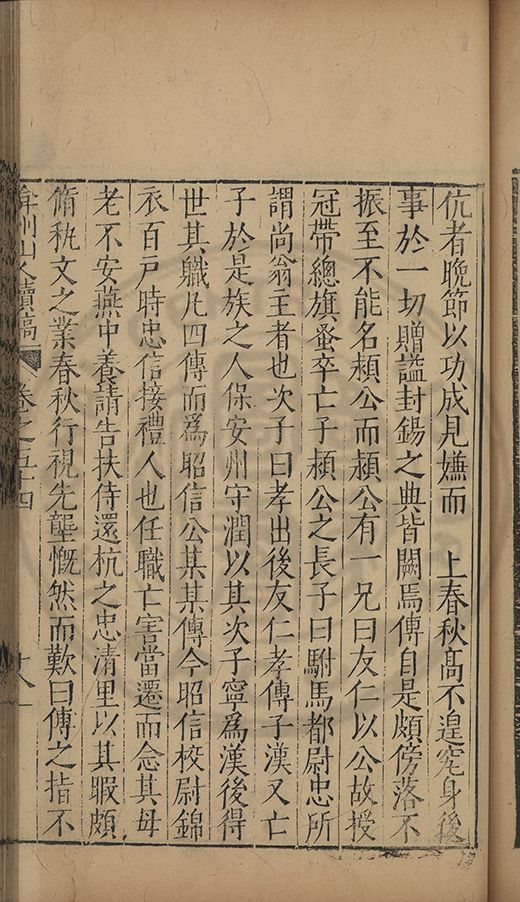 伉者晚節以功成見嫌而　上春秋高不遑究身後
事於一切贈謚封錫之典皆闕焉傳自是頗傍落不
振至不能名頴公而頴公有一兄曰友仁以公故授
冠帶總旗蚤卒亡子頴公之長子曰駙馬都尉忠所
謂尚翁主者也次子曰孝出後友仁孝傳子漢又亡
子於是族之人保安州守潤以其次子寧爲漢後得
世其軄凢四傳而爲昭信公某某傳今昭信校尉錦
衣百戸時忠信接禮人也任職亡害當遷而念其母
老不安燕中養請告扶侍還杭之忠清里以其暇頗
脩秇文之業春秋行視先壟慨然而歎曰傳之指不
弇州山人續稿　卷之五十四　十八